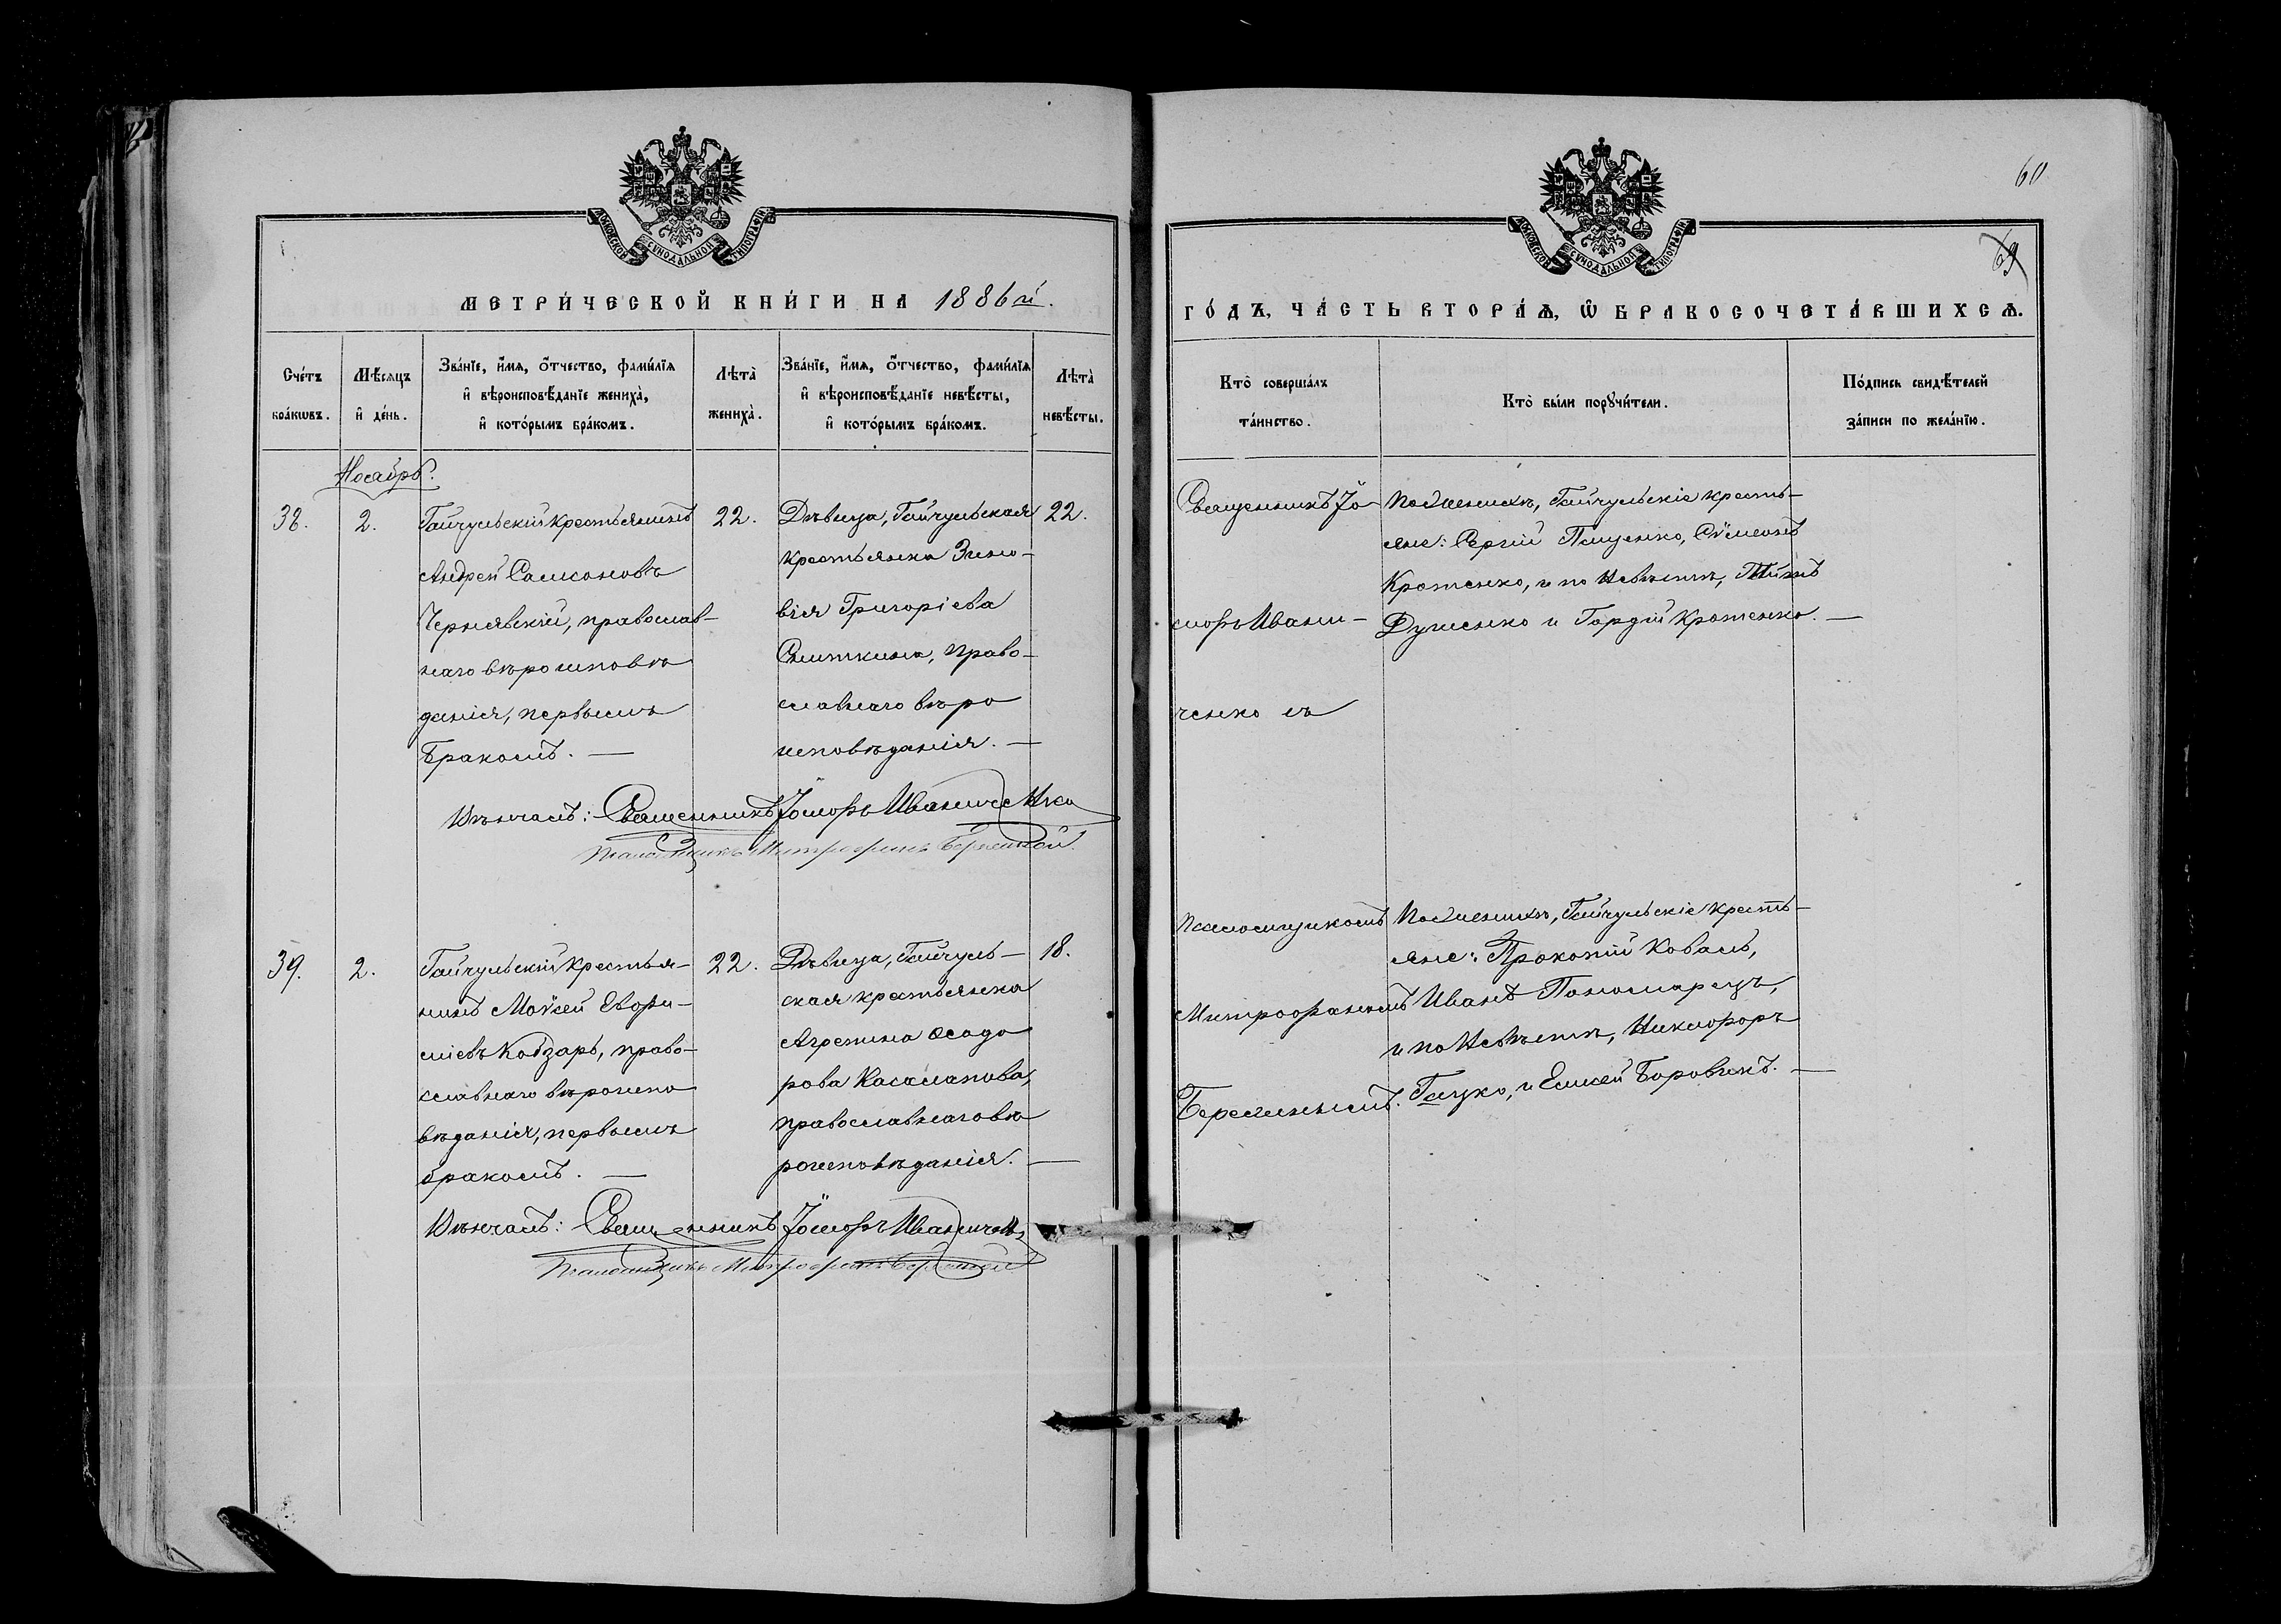 МОСКОВСКОЙ СѴНОДАЛЬНОЙ ТИПОГРАФІИ
МЕТРИ́ЧЕСКОЙ КНИ́ГИ НА 1886й.
Сче́тъ бра́кѡвъ.
Мѣ́сяцъ и҆ де́нь.
Зва́нїе, и҆́мѧ, ѻ҆́тчество, фами́лїѧ
и҆ вѣроисповѣ́данїе жениха̀,
и҆ кото́рымъ бра́комъ.
Лѣта̀ жениха̀.
Зва́нїе, и҆́мѧ, ѻ҆́тчество, фами́лїѧ
и҆ вѣроисповѣ́данїе невѣ́сты,
и҆ кото́рымъ бра́комъ.
Лѣта̀ невѣ́сты.
Ноябрь.
38.
2.
Гайчульскій крестьянинъ
Андрей Самсоновъ
Чернявскій, православ-
наго вѣроисповѣ
данія, первымъ
бракомъ. —
22.
Дѣвица, Гайчульская
крестьянка Зино-
вія Григоріева
Сниткина, право-
славнаго вѣро
исповѣданія. —
22.
Вѣнчалъ: Священникъ Іосифъ Иваниченко
Псаломщикъ Митрофанъ
39.
2.
Гайчульскій крестья-
нинъ Моѵсей Евфи-
міевъ Кобзарь, право-
славнаго вѣроиспо
вѣданія, первымъ
бракомъ. —
22.
Дѣвица, Гайчуль-
ская крестьянка
Агрепина Ѳеодо
рова
православнаго вѣ
роисповѣданія. —
18.
Вѣнчалъ: Священникъ Іосифъ
Псаломщикъ Митрофанъ
60
69
МОСКОВСКОЙ СѴНОДАЛЬНОЙ ТИПОГРАФІИ
ГО́ДЪ, ЧА́СТЬ ВТОРА́Ѧ, Ѡ҆ БРАКОСОЧЕТА́ВШИХСѦ.
Кто̀ соверша́лъ
та́инство.
Кто̀ бы́ли порꙋчи́тели.
По́дпись свидѣ́телей
за́писи по жела́нїю.
Священникъ Іо
сифъ Ивани-
ченко съ
По женихѣ, Гайчульскіе кресть-
яне: Сергій Пащенко, Сѵмеонъ
Кротенко, и по невѣстѣ,
Душенко и Гордій Кротенко. —
Псаломщикомъ
Митрофаномъ
По женихѣ, Гайчульскіе кресть-
яне: Прокопій Коваль,
Иванъ Пономарецъ,
и по невѣстѣ, Никифоръ
Гацко, и Елисей Боровикъ. —